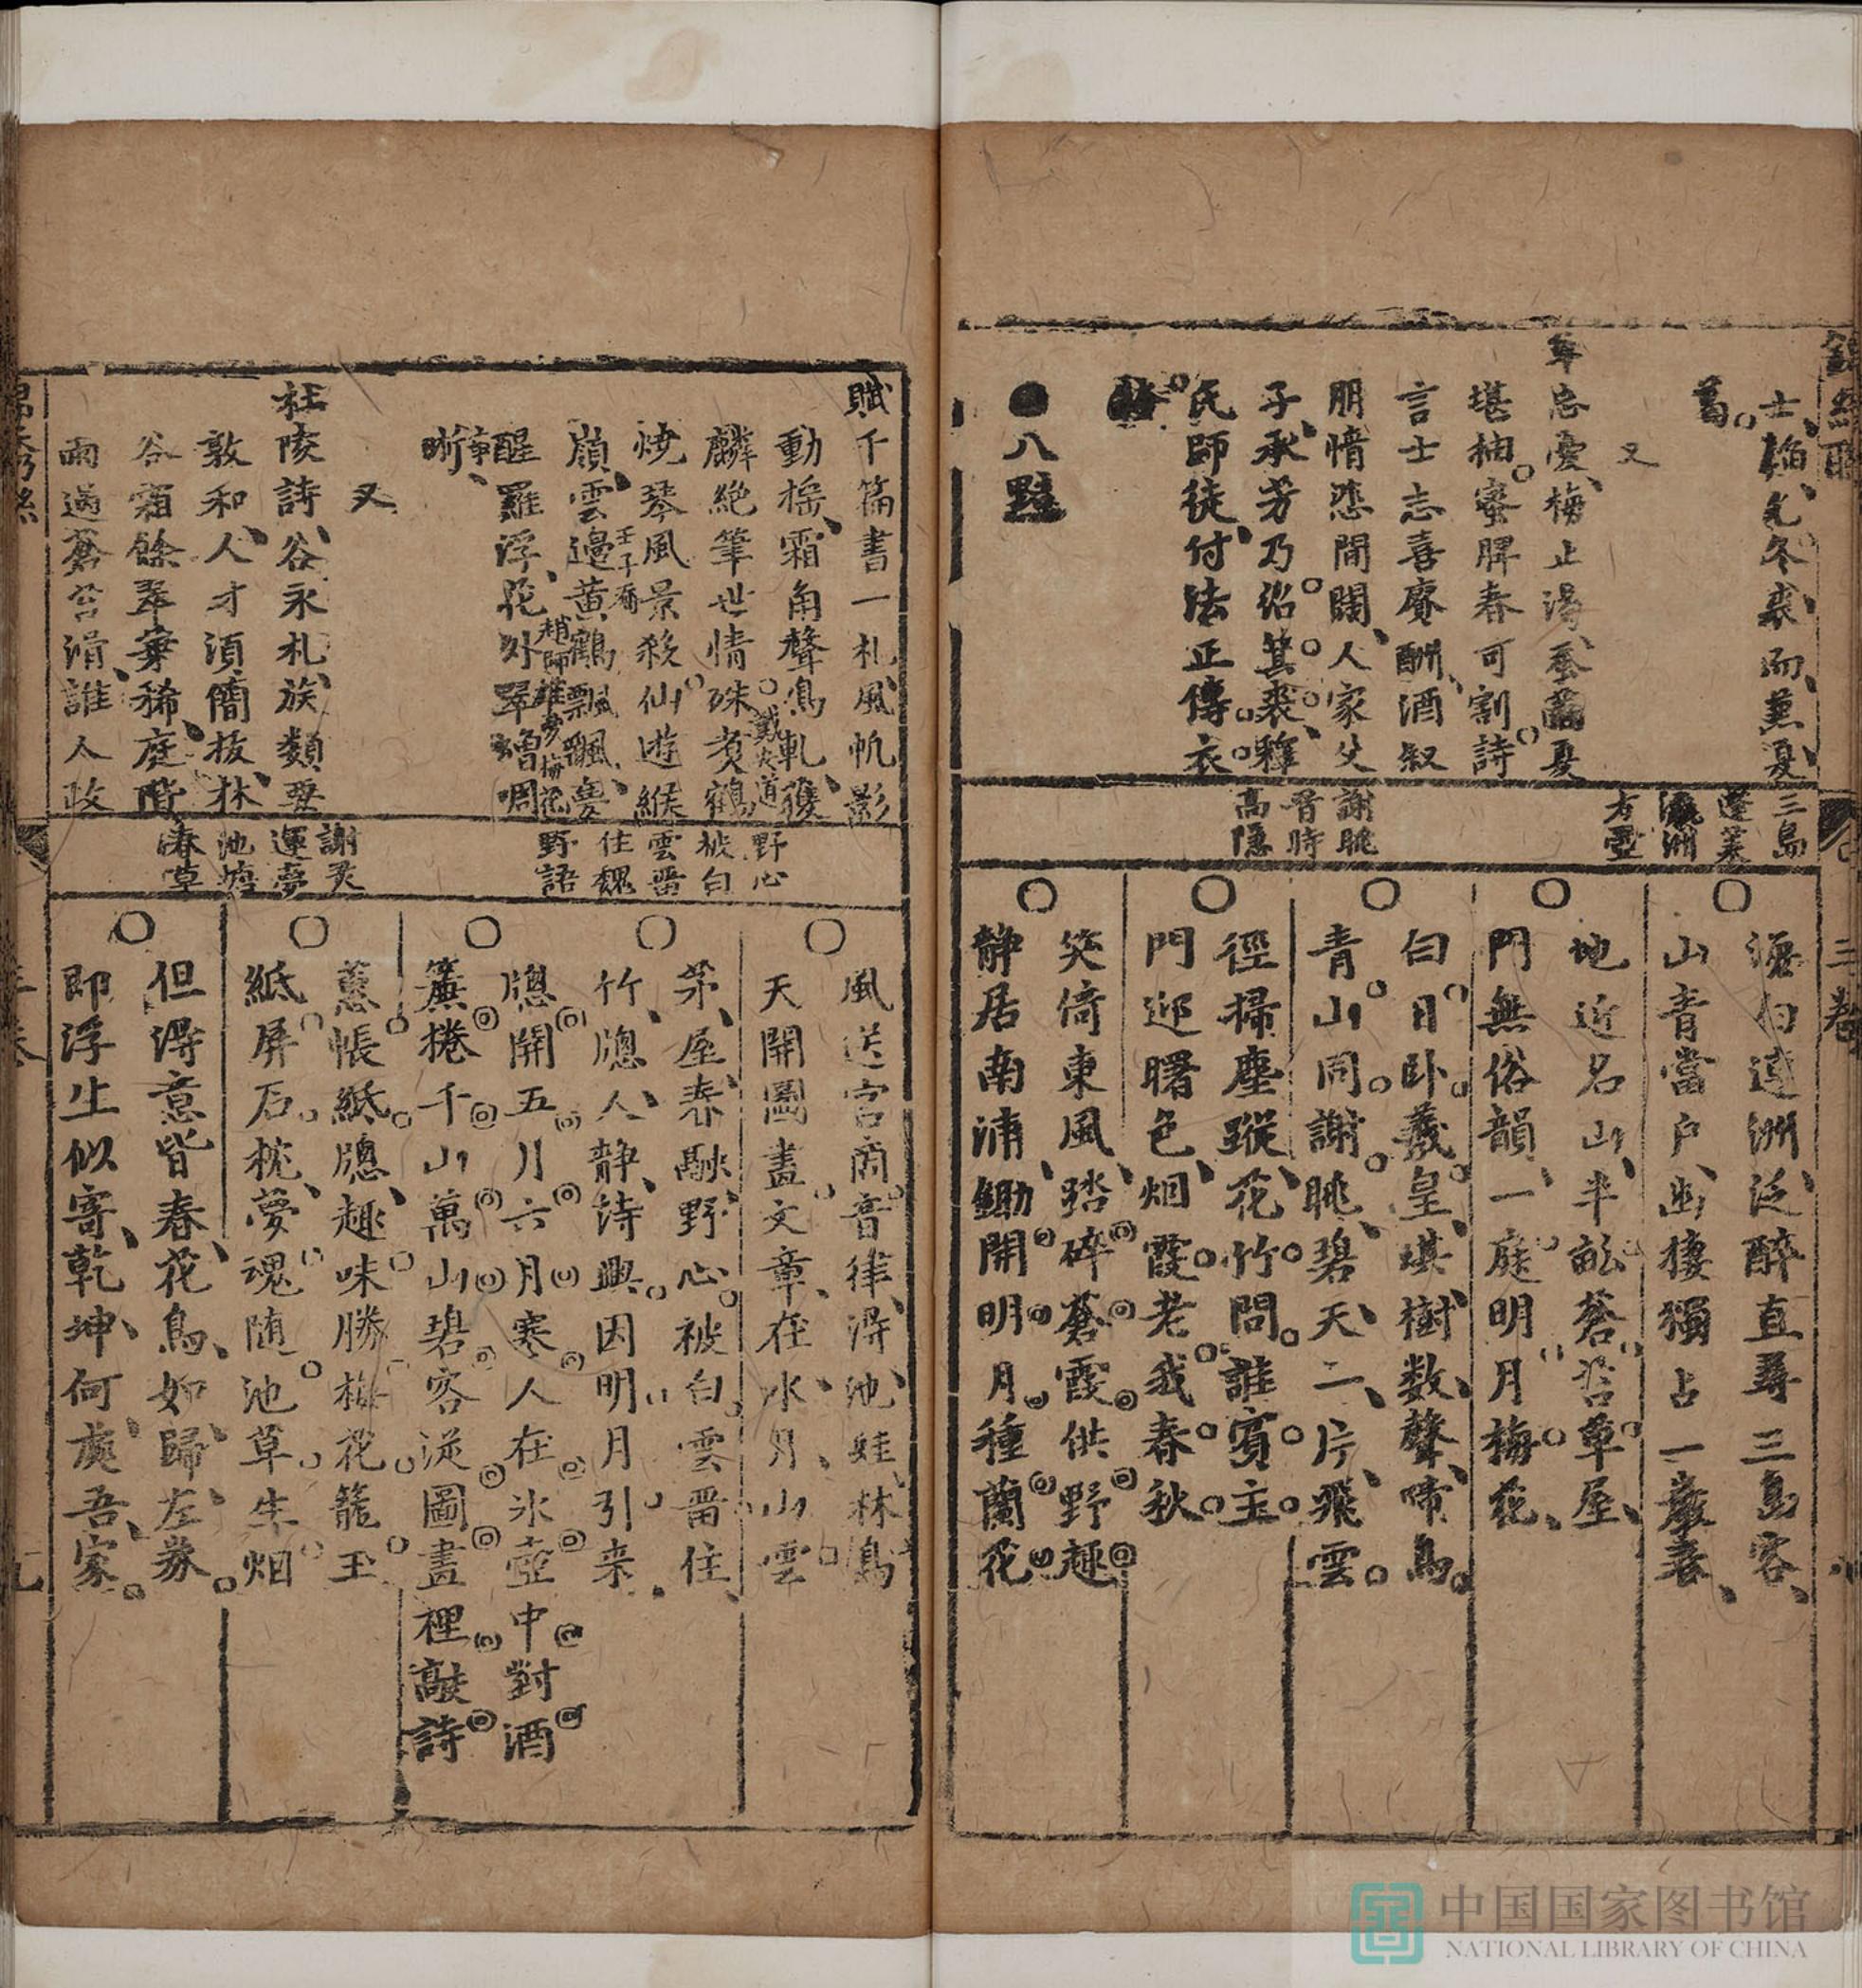 士、
葛。
又
年忘憂、梅止渴、
堪柚。蜜脾春可割。詩
言士志喜賡酬、酒叙
朋情悲間闊、人家父
子承芳乃紹箕裘、釋
氏師徒付法正傳衣
鉢
●八黠
三島
蓬萊
瀛洲
方壺
謝眺
昔時
高隱
滄白遠洲泛醉直尋三島客
山青當戶幽棲獨占一巖春
地近名山半畝蒼苔草屋
門無俗韻一庭明月梅花
白日卧羲皇琪樹数聲啼鳥
青山同謝眺碧天二片飛雲
徑掃塵蹤花竹問誰賓主
門迎曙色烟霞老我春秋
笑倚東風踏碎蒼霞供野趣
静居南浦鋤開明月種蘭花
三卷
賦千篇書一札風帆影
動搖霜角聲烏軋獲
麟絕筆世情殊煑鶴
燒琴風景殺仙遊緱
嶺雲邊黄鶴飄飄夢
醒羅浮花外翠
晣
戴炎道
王子喬
趙師雄夢梅花
又
杜陵詩谷永札族類要
敦和人才須簡拔林
谷霜餘翠葉稀庭階
雨過蒼苔滑誰人政
野心
被白
雲畱
住魏
野語
謝灵
運夢
池塘
春草
風送宮商音律得池蛙林鳥
天開圖畫文章在水月山雲
茅屋春融野心被白雲畱住
竹牕人静詩興因明月引来
牕開五月六月寒人在氷壺中對酒
簾捲千山萬山碧客從圖畫裡敲詩
蕙帳紙牕趣味勝梅花籠玉
紙屏石枕夢魂随池草生烟
但得意皆春花鳥如歸左券
即浮生似寄乾坤何處吾家
中国国家图书馆
NATIONAL LIBRARY OF CHINA